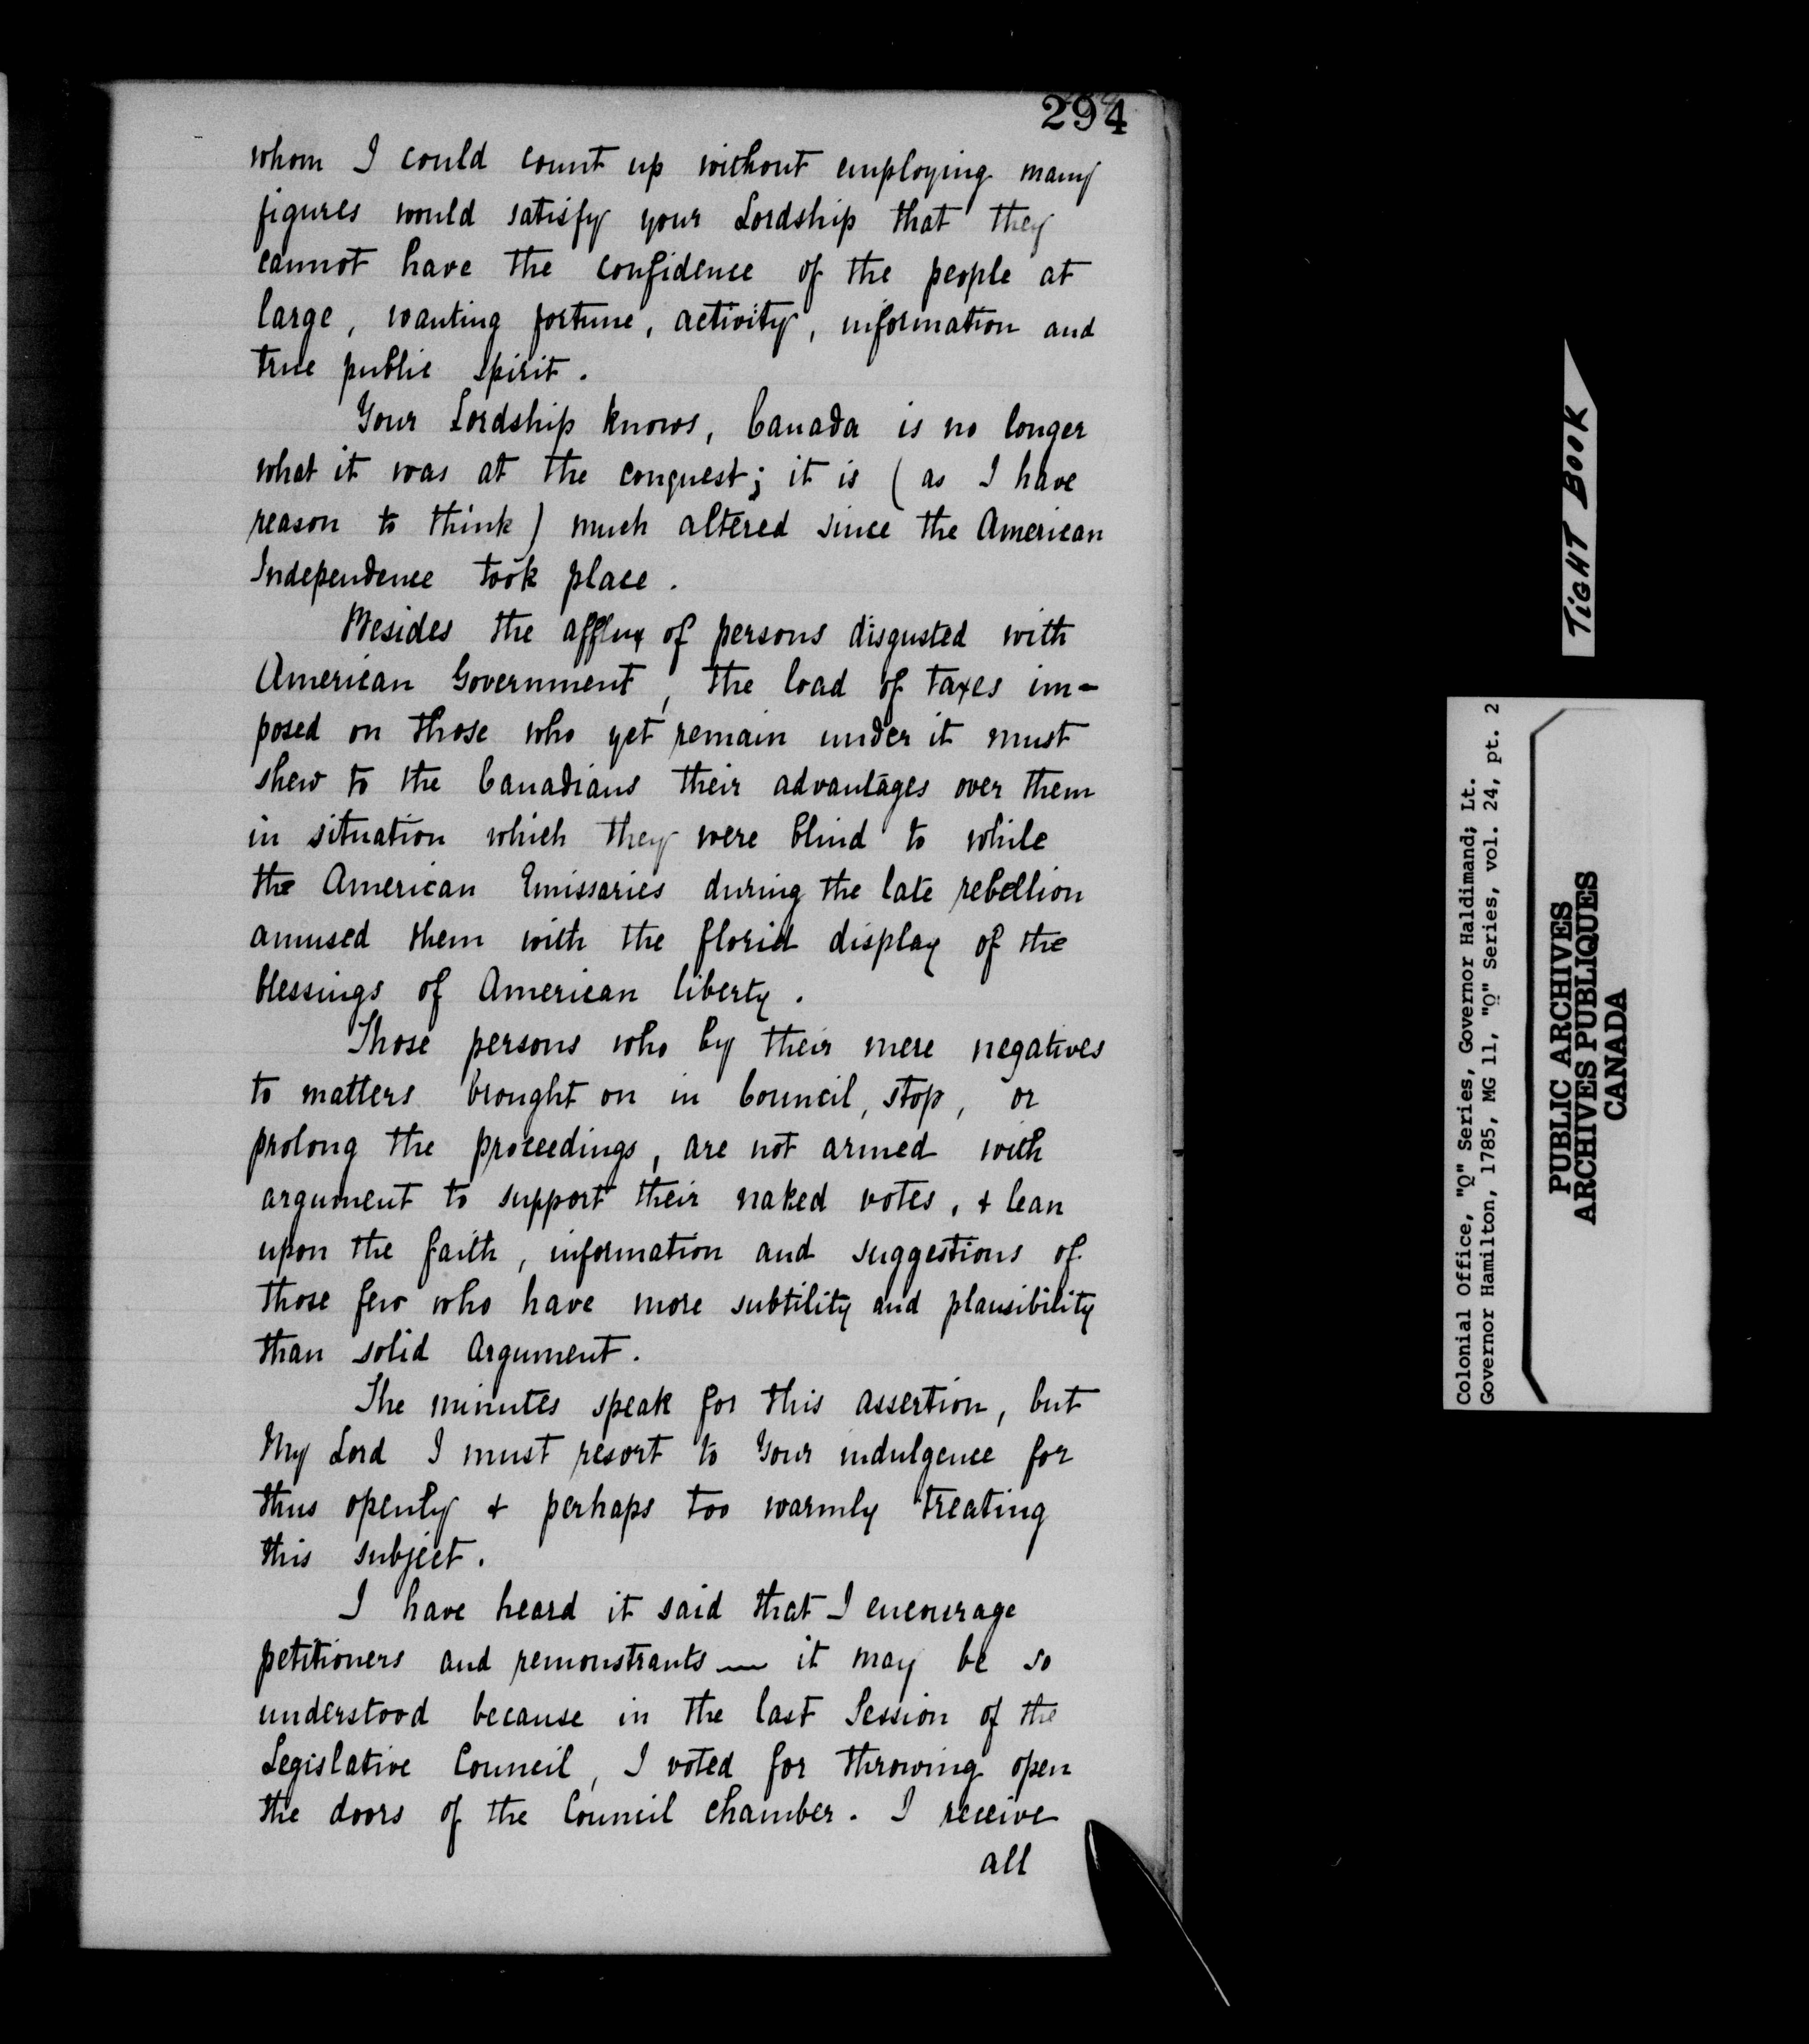 294
whom I could count up without employing many
figures would satisfy your Lordship that they
cannot have the confidence of the people at
large, wanting fortune, activity, information and
true public spirit.
Your Lordship knows, Canada is no longer
what it was at the conquest; it is (as I have
reason to think) much altered since the American
Independence took place.
Besides the afflux of persons disgusted with
American Government, the load of taxes im-
posed on those who yet remain under it must
shew to the Canadians their advantages over them
in situation which they were blind to while
the American Emissaries during the late rebellion
amused them with the florid display of the
blessings of American liberty.
Those persons who by their mere negatives
to matters brought on in Council, stop, or
prolong the proceedings, are not armed with
argument to support their naked votes, & lean
upon the faith, information and suggestions of
those few who have more subtility and plausibility
than solid Argument.
The minutes speak for this assertion, but
My Lord I must resort to Your indulgence for
thus openly & perhaps too warmly treating
this subject.
I have heard it said that I encourage
petitioners and remonstrants — it may be so
understood because in the last Session of the
Legislative Council, I voted for throwing open
the doors of the Council chamber. I receive
all
TIGHT BOOK
Colonial Office, "Q" Series, Governor Haldimand; Lt.
Governor Hamilton, 1785, MG 11, "Q" Series, vol. 24, pt. 2
PUBLIC ARCHIVES
ARCHIVES PUBLIQUES
CANADA